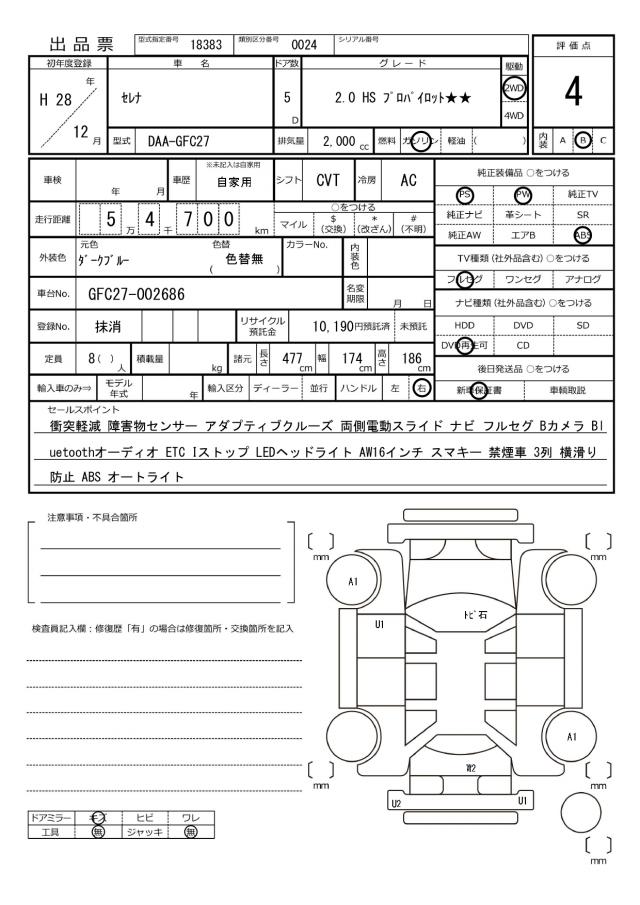 出品票 型式指定番号 18383 類別区分番号 0024 シリアル番号
評価点
4
内装 A B C
初年度登録 車名 ドア数 グレード 駆動
H 28 年 / 12 月 セレナ 5 D 2.0 HS プロパイロット★★ 2WD 4WD
型式 DAA-GFC27 排気量 2,000 cc 燃料 ガソリン 軽油 ( )
車検 年 月 車歴 ※未記入は自家用 自家用 シフト CVT 冷房 AC
走行距離 5 万 4 千 7 0 0 km ○をつける マイル $ (交換) * (改ざん) # (不明)
外装色 元色 ダークブルー 色替 ( 色替無 ) カラーNo. 内装色
車台No. GFC27-002686 名変期限 月 日
登録No. 抹消 リサイクル預託金 10,190円預託済 未預託
定員 8( ) 人 積載量 kg 諸元 長さ 477 cm 幅 174 cm 高さ 186 cm
輸入車のみ⇒ モデル年式 年 輸入区分 ディーラー 並行 ハンドル 左 右
純正装備品 ○をつける
PS PW 純正TV
純正ナビ 革シート SR
純正AW エアB ABS
TV種類(社外品含む)○をつける
フルセグ ワンセグ アナログ
ナビ種類(社外品含む)○をつける
HDD DVD SD
DVD再生可 CD
後日発送品 ○をつける
新車保証書 車輌取説
セールスポイント
衝突軽減 障害物センサー アダプティブクルーズ 両側電動スライド ナビ フルセグ Bカメラ Bl
uetoothオーディオ ETC Iストップ LEDヘッドライト AW16インチ スマキー 禁煙車 3列 横滑り
防止 ABS オートライト
注意事項・不具合箇所
検査員記入欄:修復歴「有」の場合は修復箇所・交換箇所を記入
ドアミラー キズ ヒビ ワレ
工具 無 ジャッキ 無
mm mm
A1
トビ石
U1
A1
W2
mm mm
U2 U1
mm